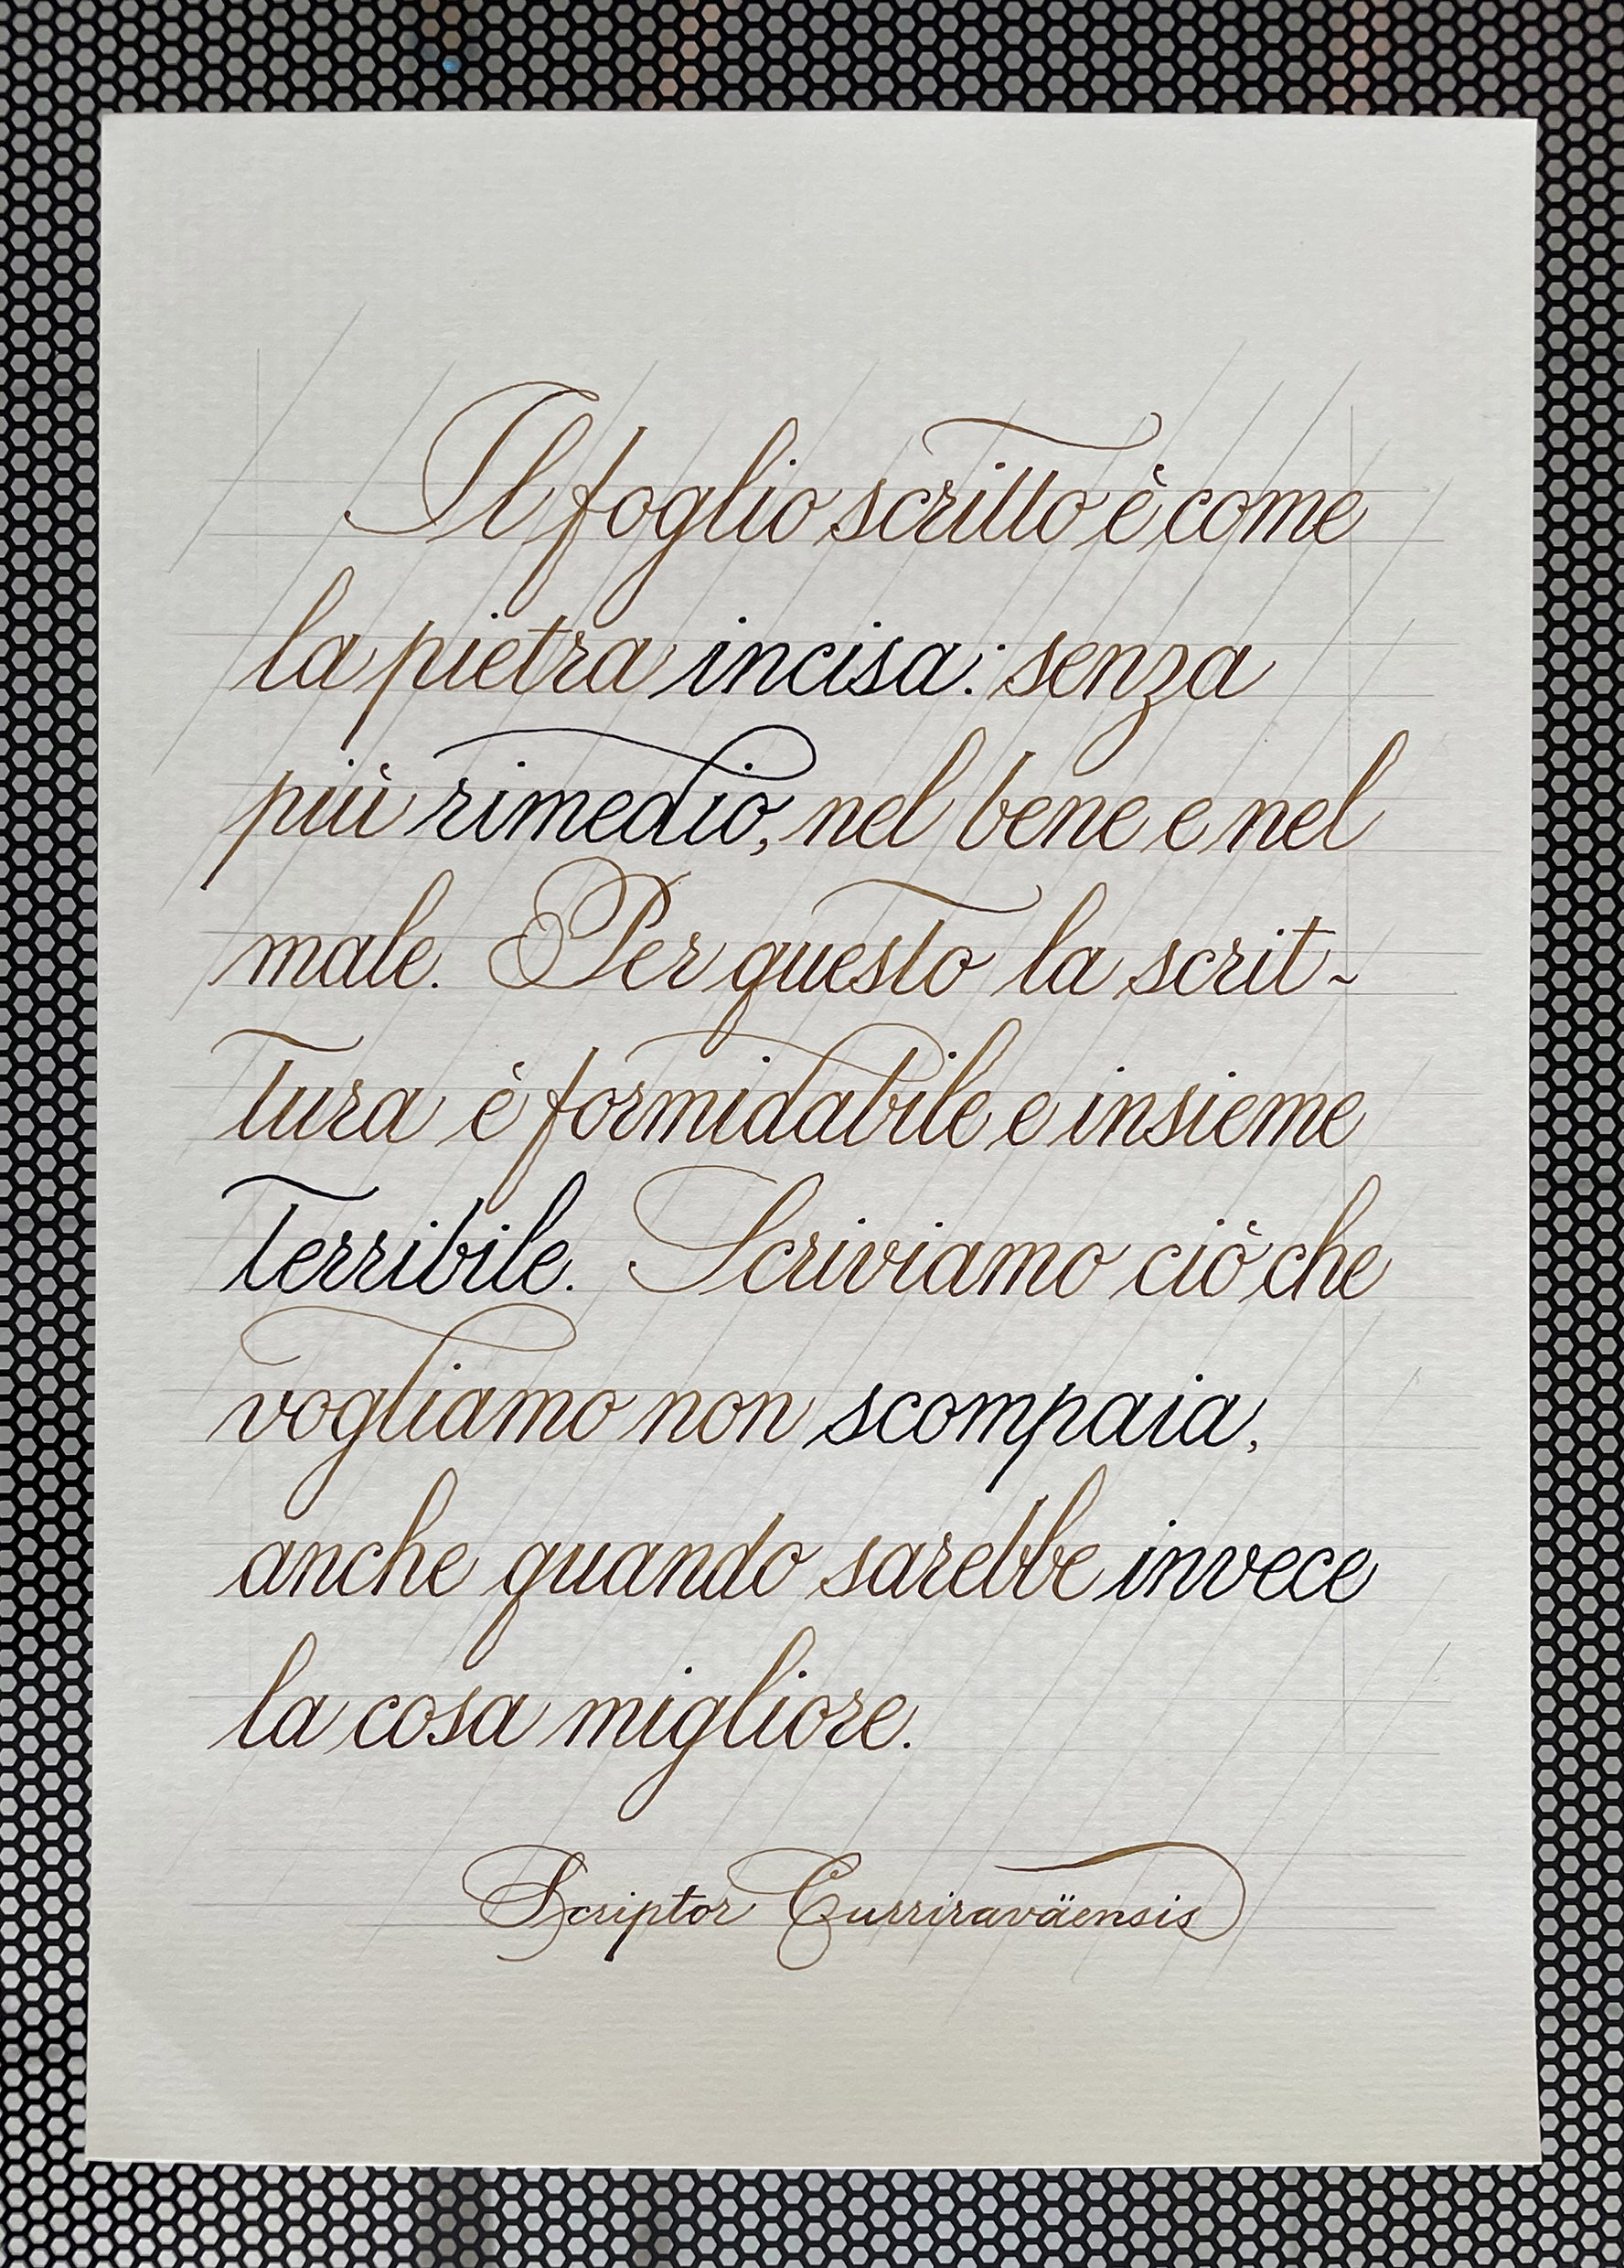 Il foglio scritto è come
la pietra incisa: senza
più rimedio, nel bene e nel
male. Per questo la scrit~
tura è formidabile e insieme
terribile. Scriviamo ciò che
vogliamo non scompaia,
anche quando sarebbe invece
la cosa migliore.
Scriptor Curriraväensis